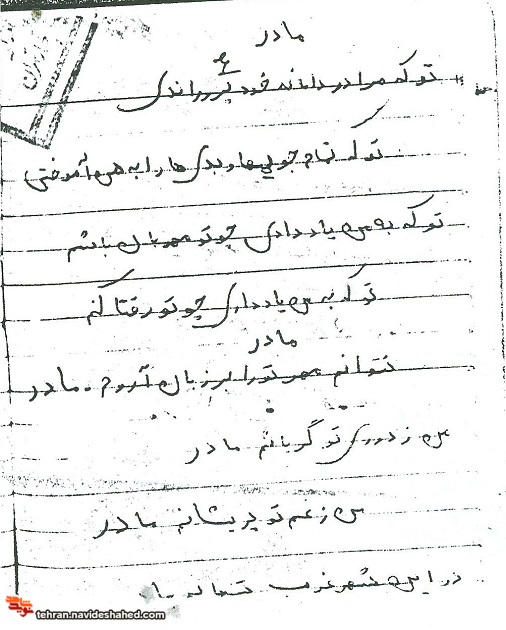 مادر
تو که مرا در دامانه خود پرراندی
تو که تمام خوبی ها و بدی ها را به من آموختی
تو که به من یاد دادی چو تو مهربان باشم
تو که به من یاد دادی چو تو رفتا کنم
مادر
نتوانم مهر تو را بر زبان آروم . مادر
من ز دوری تو گریانم مادر
من ز غم تو پریشانم مادر
در این شهر غریب تنها
tehran.navideshahed.com